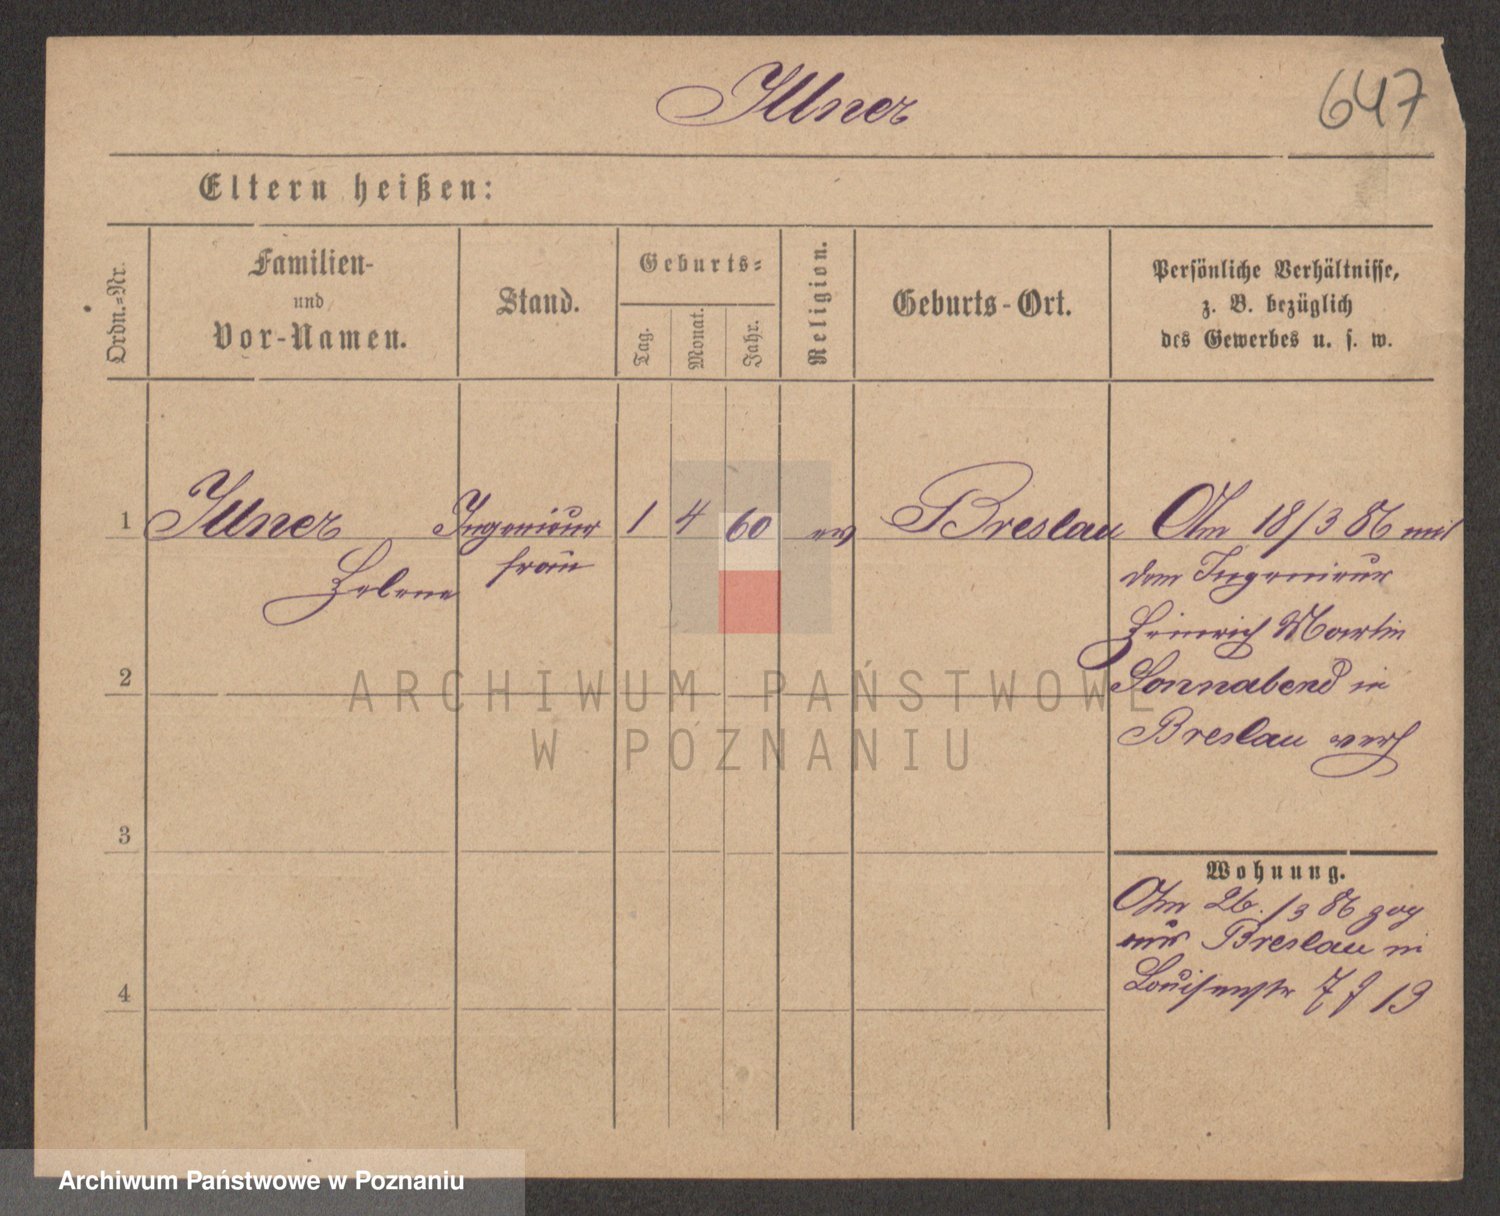 Illner
647
Eltern heißen:
Ordn.-Nr.
Familien-
und
Vor-Namen.
Stand.
Geburts-
Tag.
Monat.
Jahr.
Religion.
Geburts-Ort.
Persönliche Verhältnisse,
z. B. bezüglich
des Gewerbes u. s. w.
1 Illner Ingenieur 1 4 60 ev Breslau Am 18/3 86 mit
Helene frau dem Ingenieur
Heinrich Martin
2 Sonnabend in
Breslau verh
3
Wohnung.
Am 26./3 86 zog
aus Breslau in
4 Louisenstr 7 f 19
ARCHIWUM PAŃSTWOWE
W POZNANIU
Archiwum Państwowe w Poznaniu